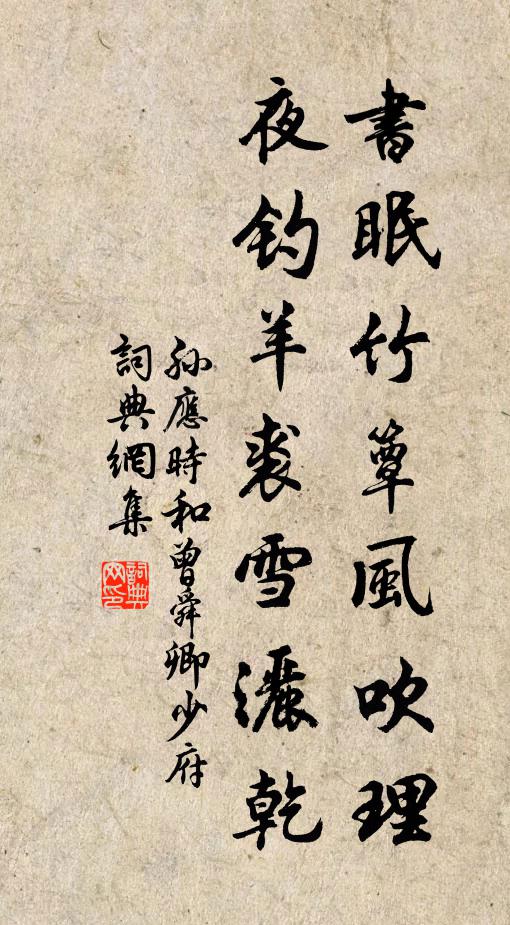 書眠竹簟風吹理
夜釣羊裘雪灑乾
孫應時和曾舜卿少府
詞典網集
詞典網印